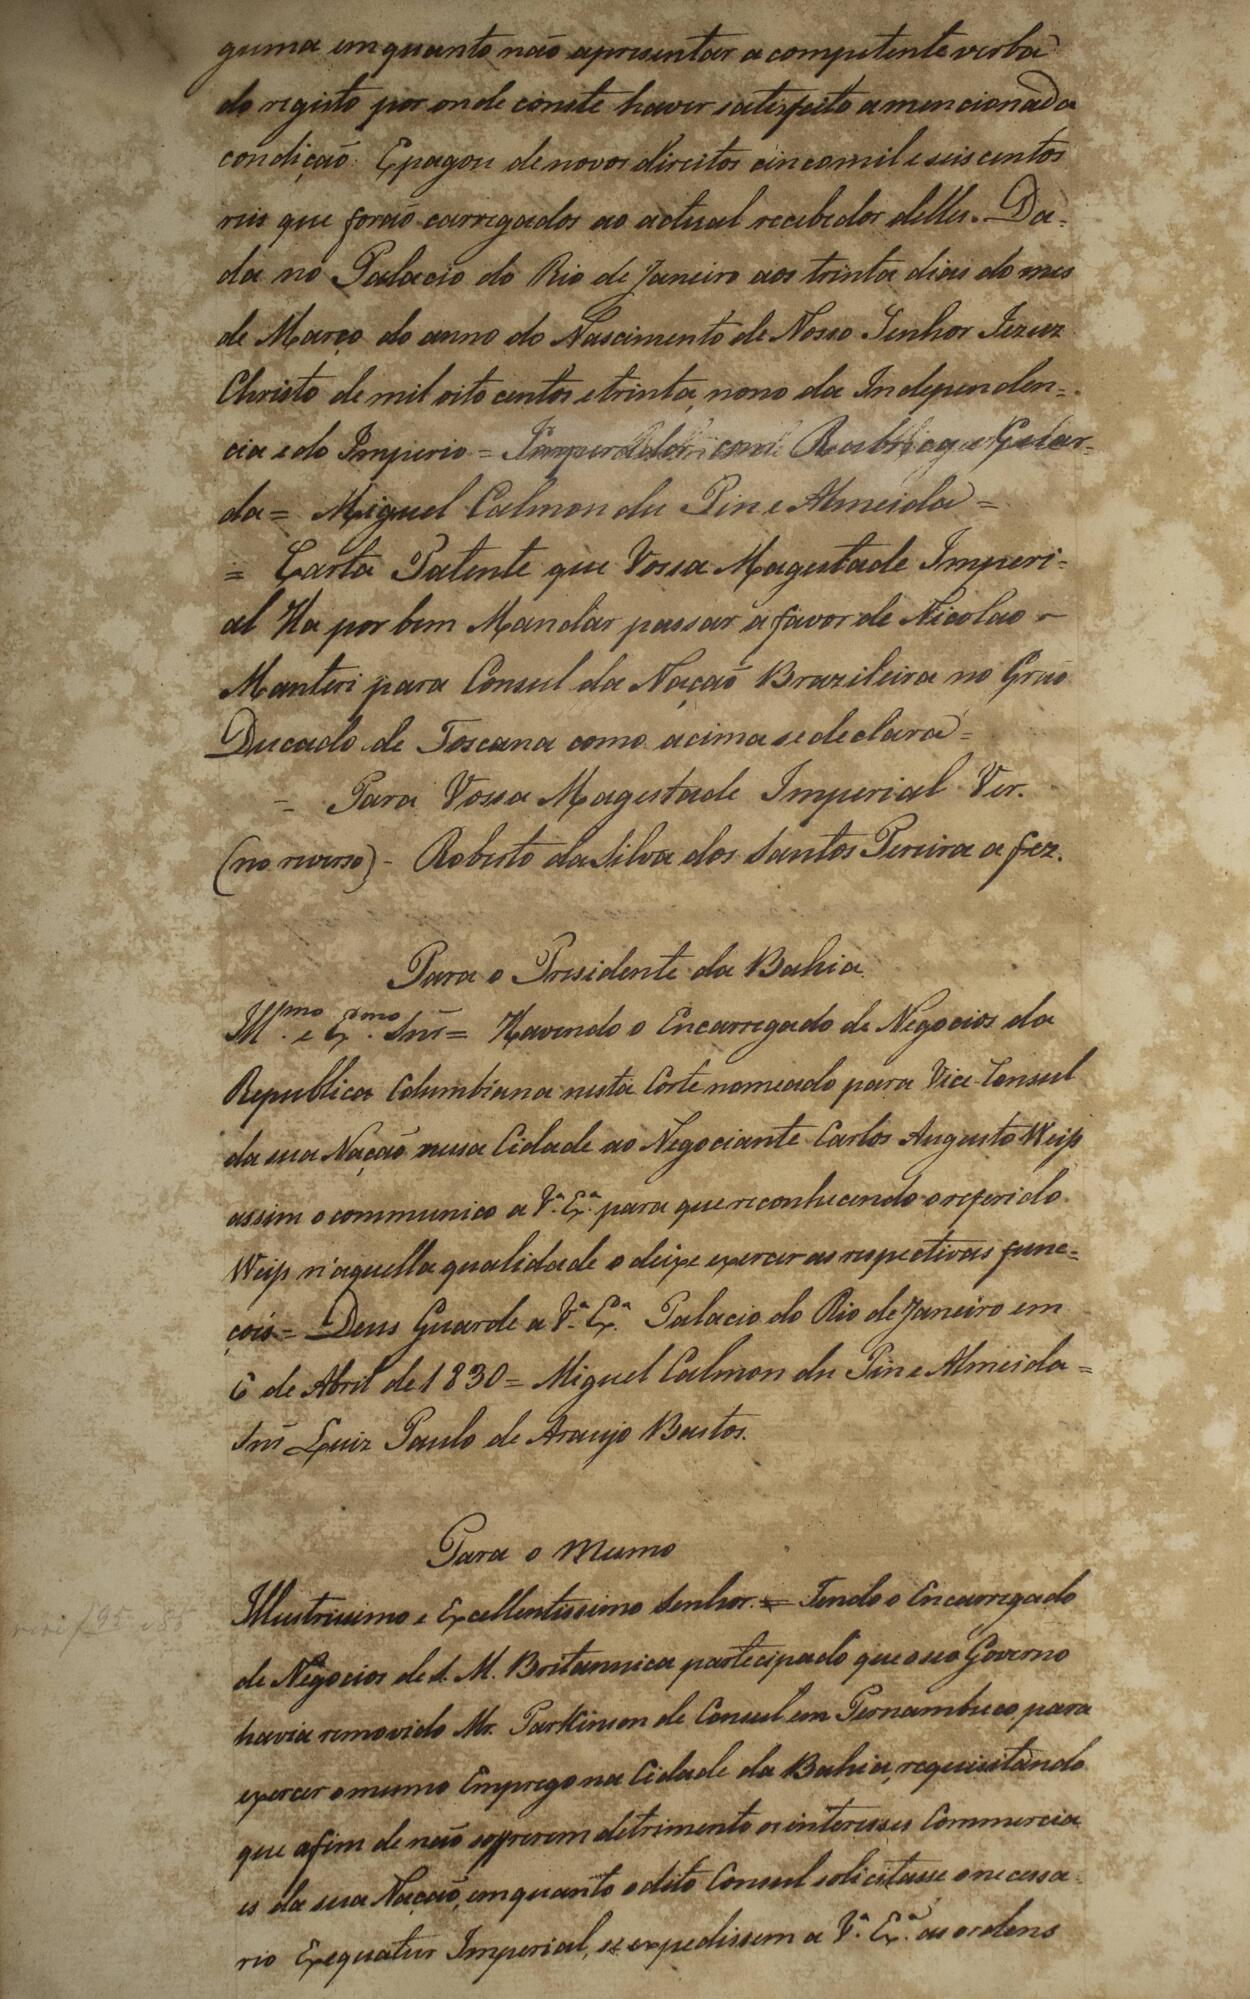 guma emquanto não apresentar a competente verba
do registo por onde conste haver satisfeito a mencionada
condição. E pagou de novos direitos cinco mil e seis centos
reis que forão carregados ao actual recebedor delles. Da-
da no Palacio do Rio de Janeiro aos trinta dias do mes
de Março do anno do Nascimento de Nosso Senhor Jezuz
Christo de mil oito centos e trinta, nono da Independen=
cia e do Imperio = Imperador com Rubrica e Guar-
da = Miguel Calmon du Pin e Almeida =
= Carta Patente que Vossa Magestade Imperi=
al Ha por bem Mandar passar a favor de Nicolao
Manteri para Consul da Nação Brazileira no Grão
Ducado de Toscana como acima se declara =
= Para Vossa Magestade Imperial Ver.
(no reverso) - Roberto da Silva dos Santos Pereira a fez.
Para o Presidente da Bahia
Ill.mo e Ex.mo Snr = Havendo o Encarregado de Negocios da
Republica Columbiana nesta Corte nomeado para Vice-Consul
da sua Nação nessa Cidade ao Negociante Carlos Augusto Weip
assim o communico a V.ª Ex.ª para que reconhecendo o referido
Weip n'aquella qualidade o deixe exercer as respectivas func=
çoẽs = Deus Guarde a V.ª Ex.ª Palacio do Rio de Janeiro em
6 de Abril de 1830 = Miguel Calmon du Pin e Almeida =
Snr Luiz Paulo de Araujo Bastos.
Para o mesmo
Illustrissimo e Excellentissimo Senhor. = Tendo o Encarregado
de Negocios de S. M. Britannica partecipado que o seo Governo
havia removido Mr. Parkinson de Consul em Pernambuco, para
exercer o mesmo Emprego na Cidade da Bahia, requisitando
que afim de não soffrerem detrimento os interesses Commercia
es da sua Nação, emquanto o dito Consul solicitasse o necessa
rio Exequatur Imperial, se expedissem a V.ª Ex.ª as ordens